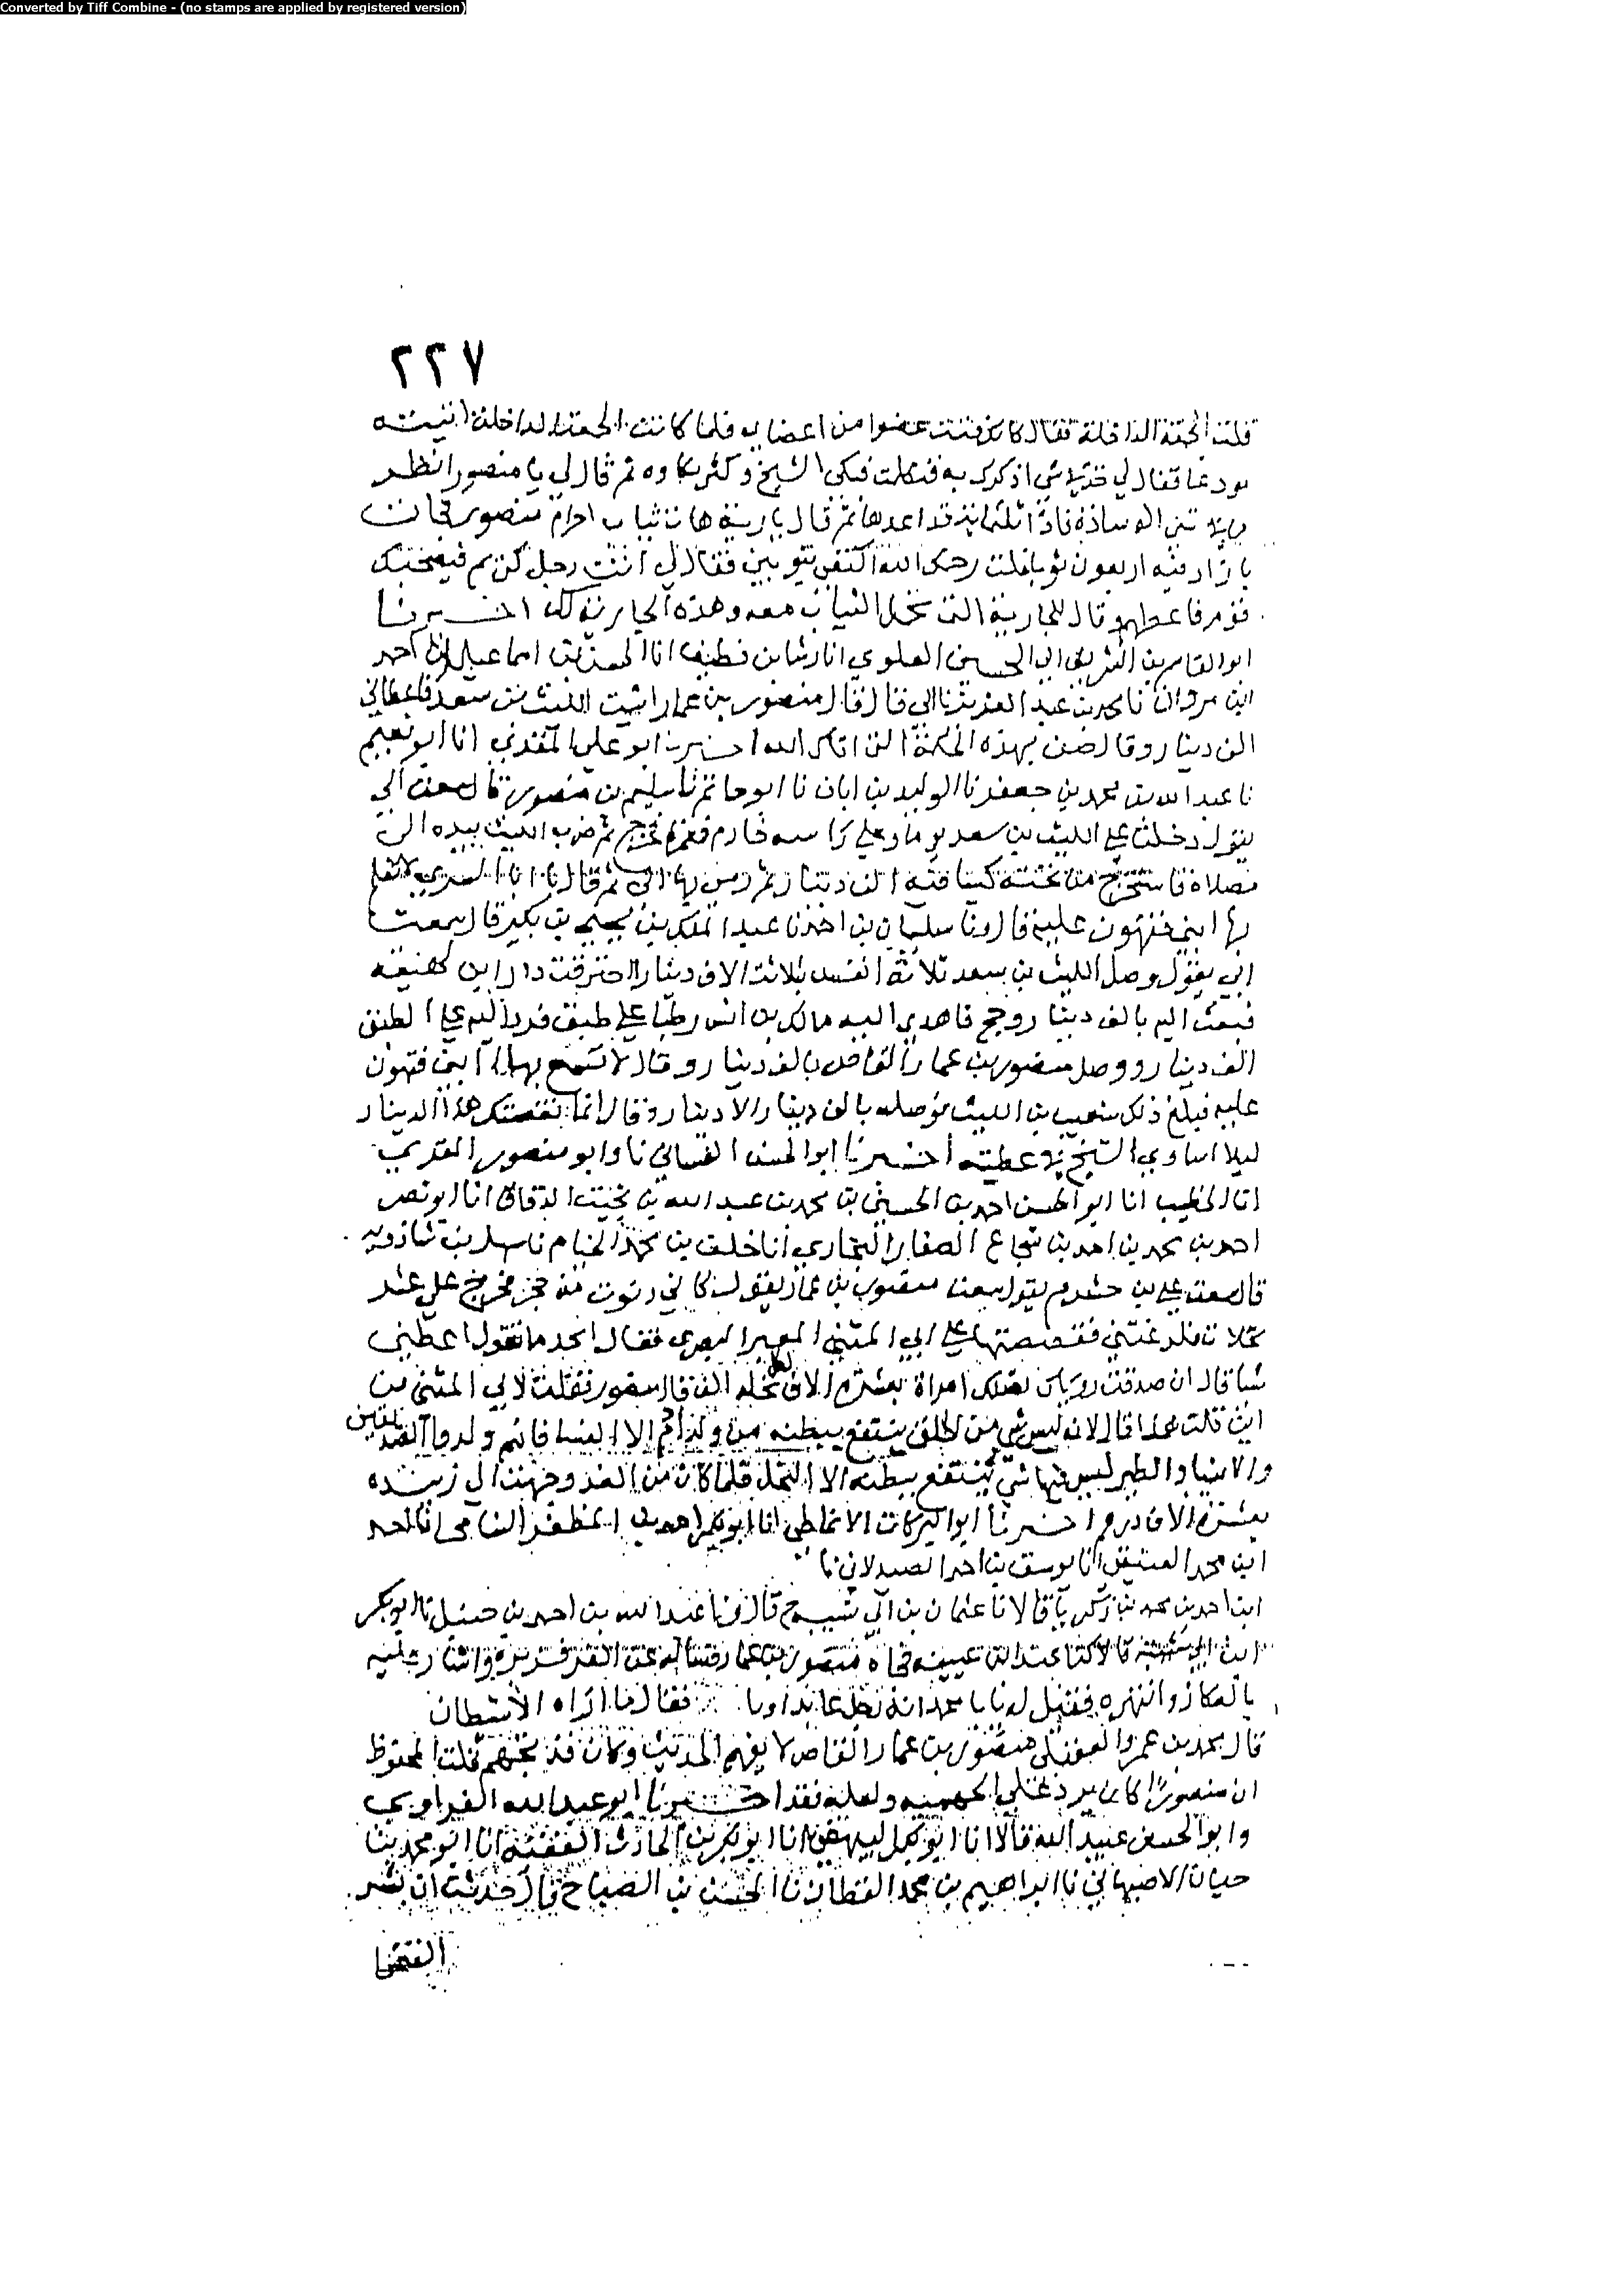 Converted by Tiff Combine - (no stamps are applied by registered version)
٢٢٧
قلت الجمعة الداخلة فقال كانك فتت عضوا من اعضايي فلما كانت الجمعة الداخلة اتيته
مودعا فقال لي خذ في شي اذكرك به فتكلمت فبكى الشيخ وكثر بكاوه ثم قال لي يا منصور انظر
ما في ثني الوسادة فاذا ثلثماية قد اعدها ثم قال يا جارية هات ثياب احرام منصور فجات
بازار فيه اربعون ثوبا قلت رحمك الله اكتفي بثوبين فقال لي انت رجل كريم فيصحبك
قوم فاعطهم وقال للجارية التي تحمل الثياب معه وهذه الجارية لك اخبرنا
ابو القاسم بن الشريف ابي الحسن العلوي انا رشا بن نظيف انا الحسن بن اسماعيل انا احمد
ابن مروان نا محمد بن عبد العزيز نا ابي قال قال منصور بن عمار اتيت الليث بن سعد فاعطاني
الف دينار وقال صن بهذه الحكمة التي اتاك الله اخبرنا ابو علي المقدي انا ابو نعيم
نا عبد الله بن محمد بن جعفر نا الوليد بن ابان نا ابو حاتم نا سليم بن منصور قال سمعت ابي
يقول دخلت على الليث بن سعد يوما وعلى راسه خادم فغمزه فخرج ثم ضرب الليث بيده الى
مصلاه فاستخرج من تحته كيسا فيه الف دينار ثم رمى بها الي ثم قال يا ابا السري لا تعلم
بها ابني فتهون عليه قال ونا سليمان بن احمد نا عبد الملك بن يحيى بن بكير قال سمعت
ابي يقول وصل الليث بن سعد ثلاثة انفس بثلاثة الاف دينار احترقت دار ابن لهيعة
فبعث اليه بالف دينار وحج فاهدى اليه مالك بن انس رطبا على طبق فرد اليه على الطبق
الف دينار ووصل منصور بن عمار القاص بالف دينار وقال لا تسمع بها ابني فتهون
عليه فبلغ ذلك شعيب بن الليث فوصله بالف دينار الا دينار وقال انما نقصتك هذا الدينار
ليلا اساوي الشيخ في عطيته اخبرنا ابو الحسن الغساني نا وابو منصور المقري
انا الخطيب انا ابو الحسن احمد بن الحسين بن محمد بن عبد الله بن بخيت الدقاق انا ابو نصر
احمد بن محمد بن احمد بن شجاع الصفار البخاري انا خلف بن محمد الخيام نا سهل بن شاذويه
قال سمعت علي بن خشرم يقول سمعت منصور بن عمار يقول كاني دنوت من جحر فخرج علي عشر
نحلات فلدغتني فقصصتها على ابي المثنى المعبر البصري فقال الجد ما تقول اعطني
شيا قال ان صدقت روياك تصلك امراة بعشرة الاف لكل نحلة الف قال منصور فقلت لابي المثنى من
اين قلت هذا قال لانه ليس شي من الخلق ينتفع ببطنه من ولد ادم الا النسا فانهم ولدوا الصديقين
والانبيا والطير ليس فيها شي ينتفع ببطنه الا النحل فلما كان من الغد وجهت الي زبيدة
بعشرة الاف درهم اخبرنا ابو البركات الانماطي انا ابو بكر احمد بن المظفر الشامي انا احمد
ابن محمد العتيقي انا يوسف بن احمد الصيدلاني نا
ابن احمد بن محمد بن زكريا قالا نا عثمان بن ابي شيبة ح قال ونا عبد الله بن احمد بن حنبل نا ابو بكر
ابن ابي شيبة قالا كنا عند ابن عيينة فجاه منصور بن عمار فساله عن القرآن فزبره واشار عليه
بالعكاز وانتهره فقيل له يا با محمد انه رجل عابد فقال ما اراه الا شيطان
قال محمد بن عمرو العقيلي منصور بن عمار القاص لا يقيم الحديث وكان فيه تجهم قلت المحفوظ
ان منصورا كان يرد على الجهمية ولعله نقد اخبرنا ابو عبد الله الفراوي
وابو الحسن عبيد الله قالا انا ابو بكر البيهقي انا ابو بكر بن الحارث الفقيه انا ابو محمد بن
حيان الاصبهاني نا ابراهيم بن محمد القطان نا الحسن بن الصباح قال حدثت ان بشر